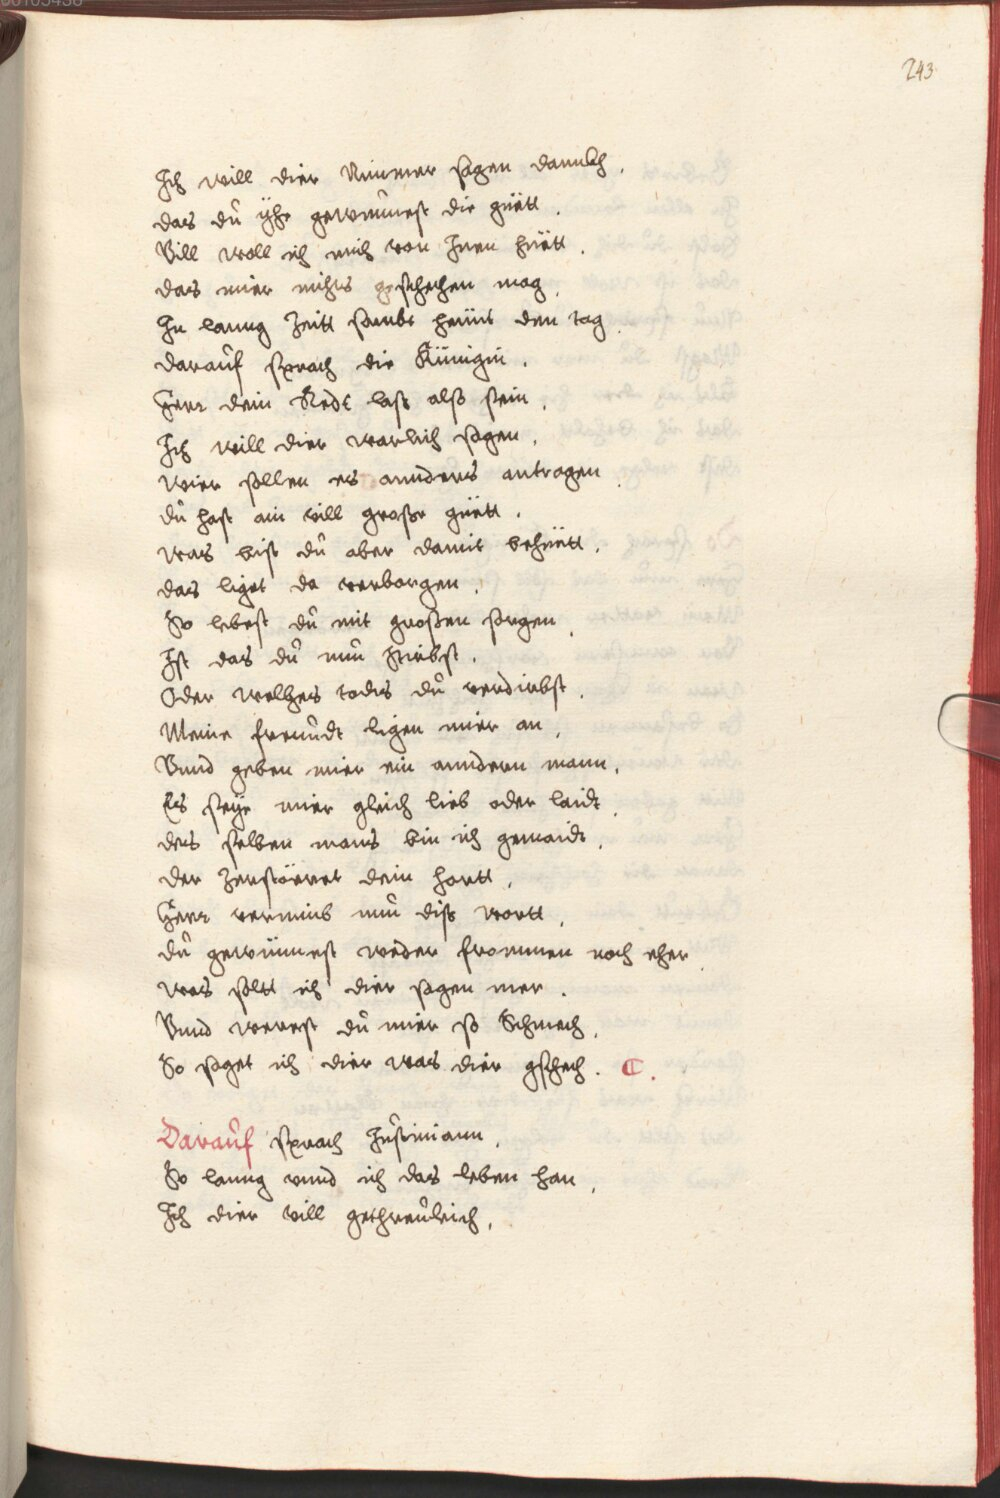 243
Ich will dier Nimmer sagen dannkh.
das dŭ yhe gewinnest die güett.
Vill woll ich mich von Inen hüett.
das mier nichts geschechen mag
In lanng Zeitt sambt heint den tag.
darauf sprach die Künigin.
Herr dein Redt lasß alß sein.
Ich will dier warlich sagen.
wier sollen es annders antragen.
dŭ hast ain vill große güett.
was bist dŭ aber damit behüett.
das liget da verborgen.
So lebest dŭ mit großen sorgen.
Ist das dŭ nŭn stirbst.
Oder welhes todes dŭ verdirbst.
Meine freŭndt ligen mier an.
Vnnd geben mier ein anndern mann.
Es seye mier gleich lieb oder laidt.
des selben mans bin ich gemaidt.
der Zerstörret dein hortt.
Herr vernimb nŭn diß wortt.
dŭ gewinnest weder frommen noch eher.
was soltt ich dier sagen mer.
Vnnd werest dŭ mier so Schmech.
So saget ich dier was dier gschech. C.
Darauf sprach Jŭstiniann.
So lanng vnnd ich das leben han.
Ich dier will gethreŭleich.